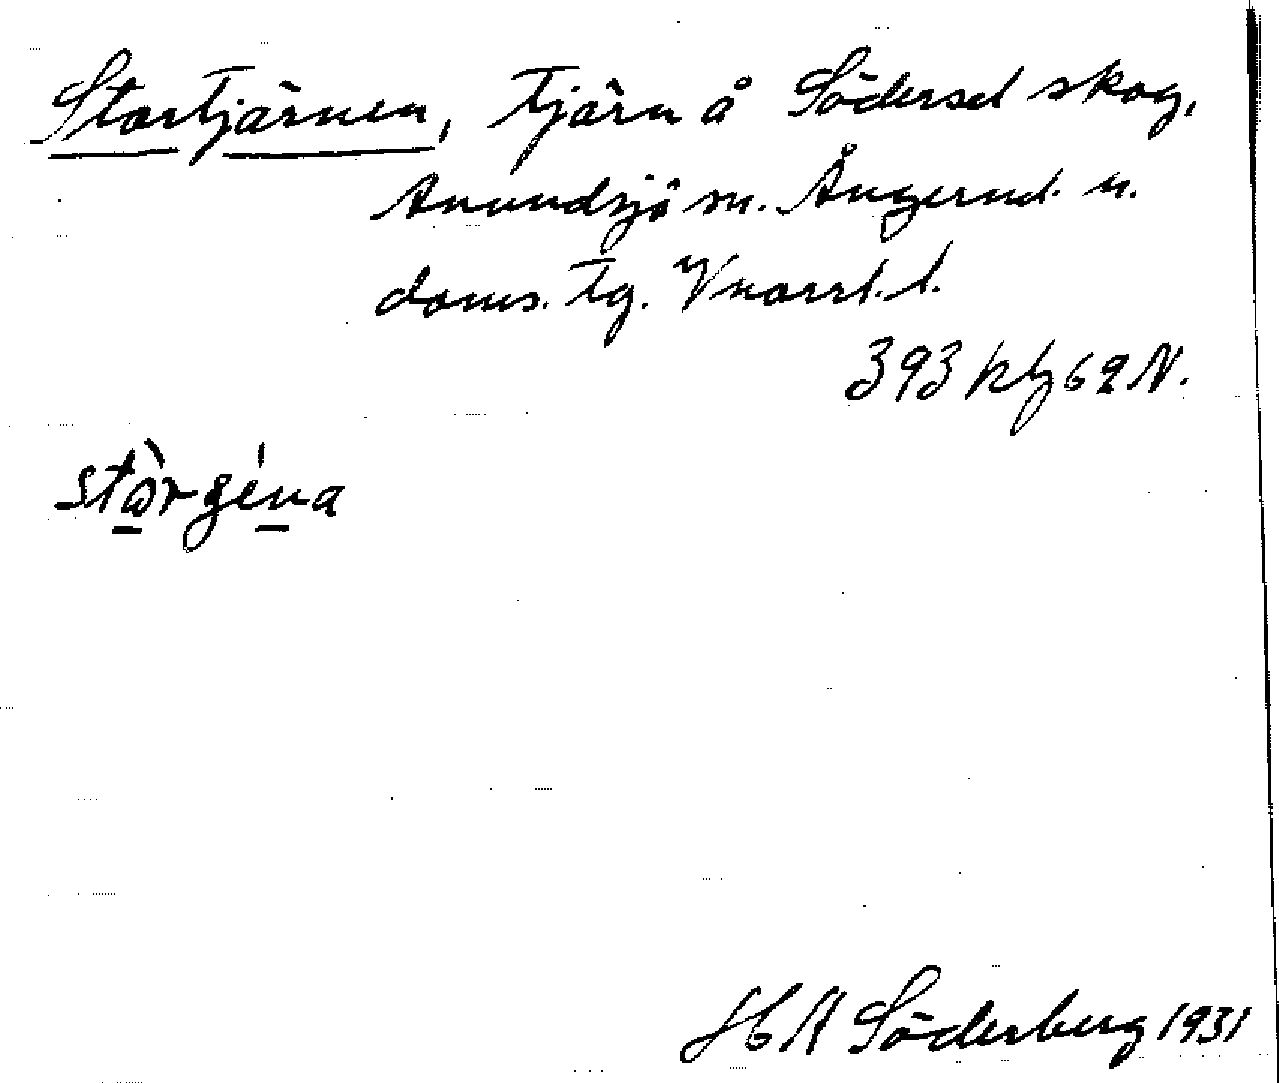 Stortjärnen, tjärn å Södersel skog,
Anundsjö sn. Ångermd. n.
doms. tg. Vnorrl. l.
393 kbf 62 N.
stòrgéna
H A Söderberg 1931